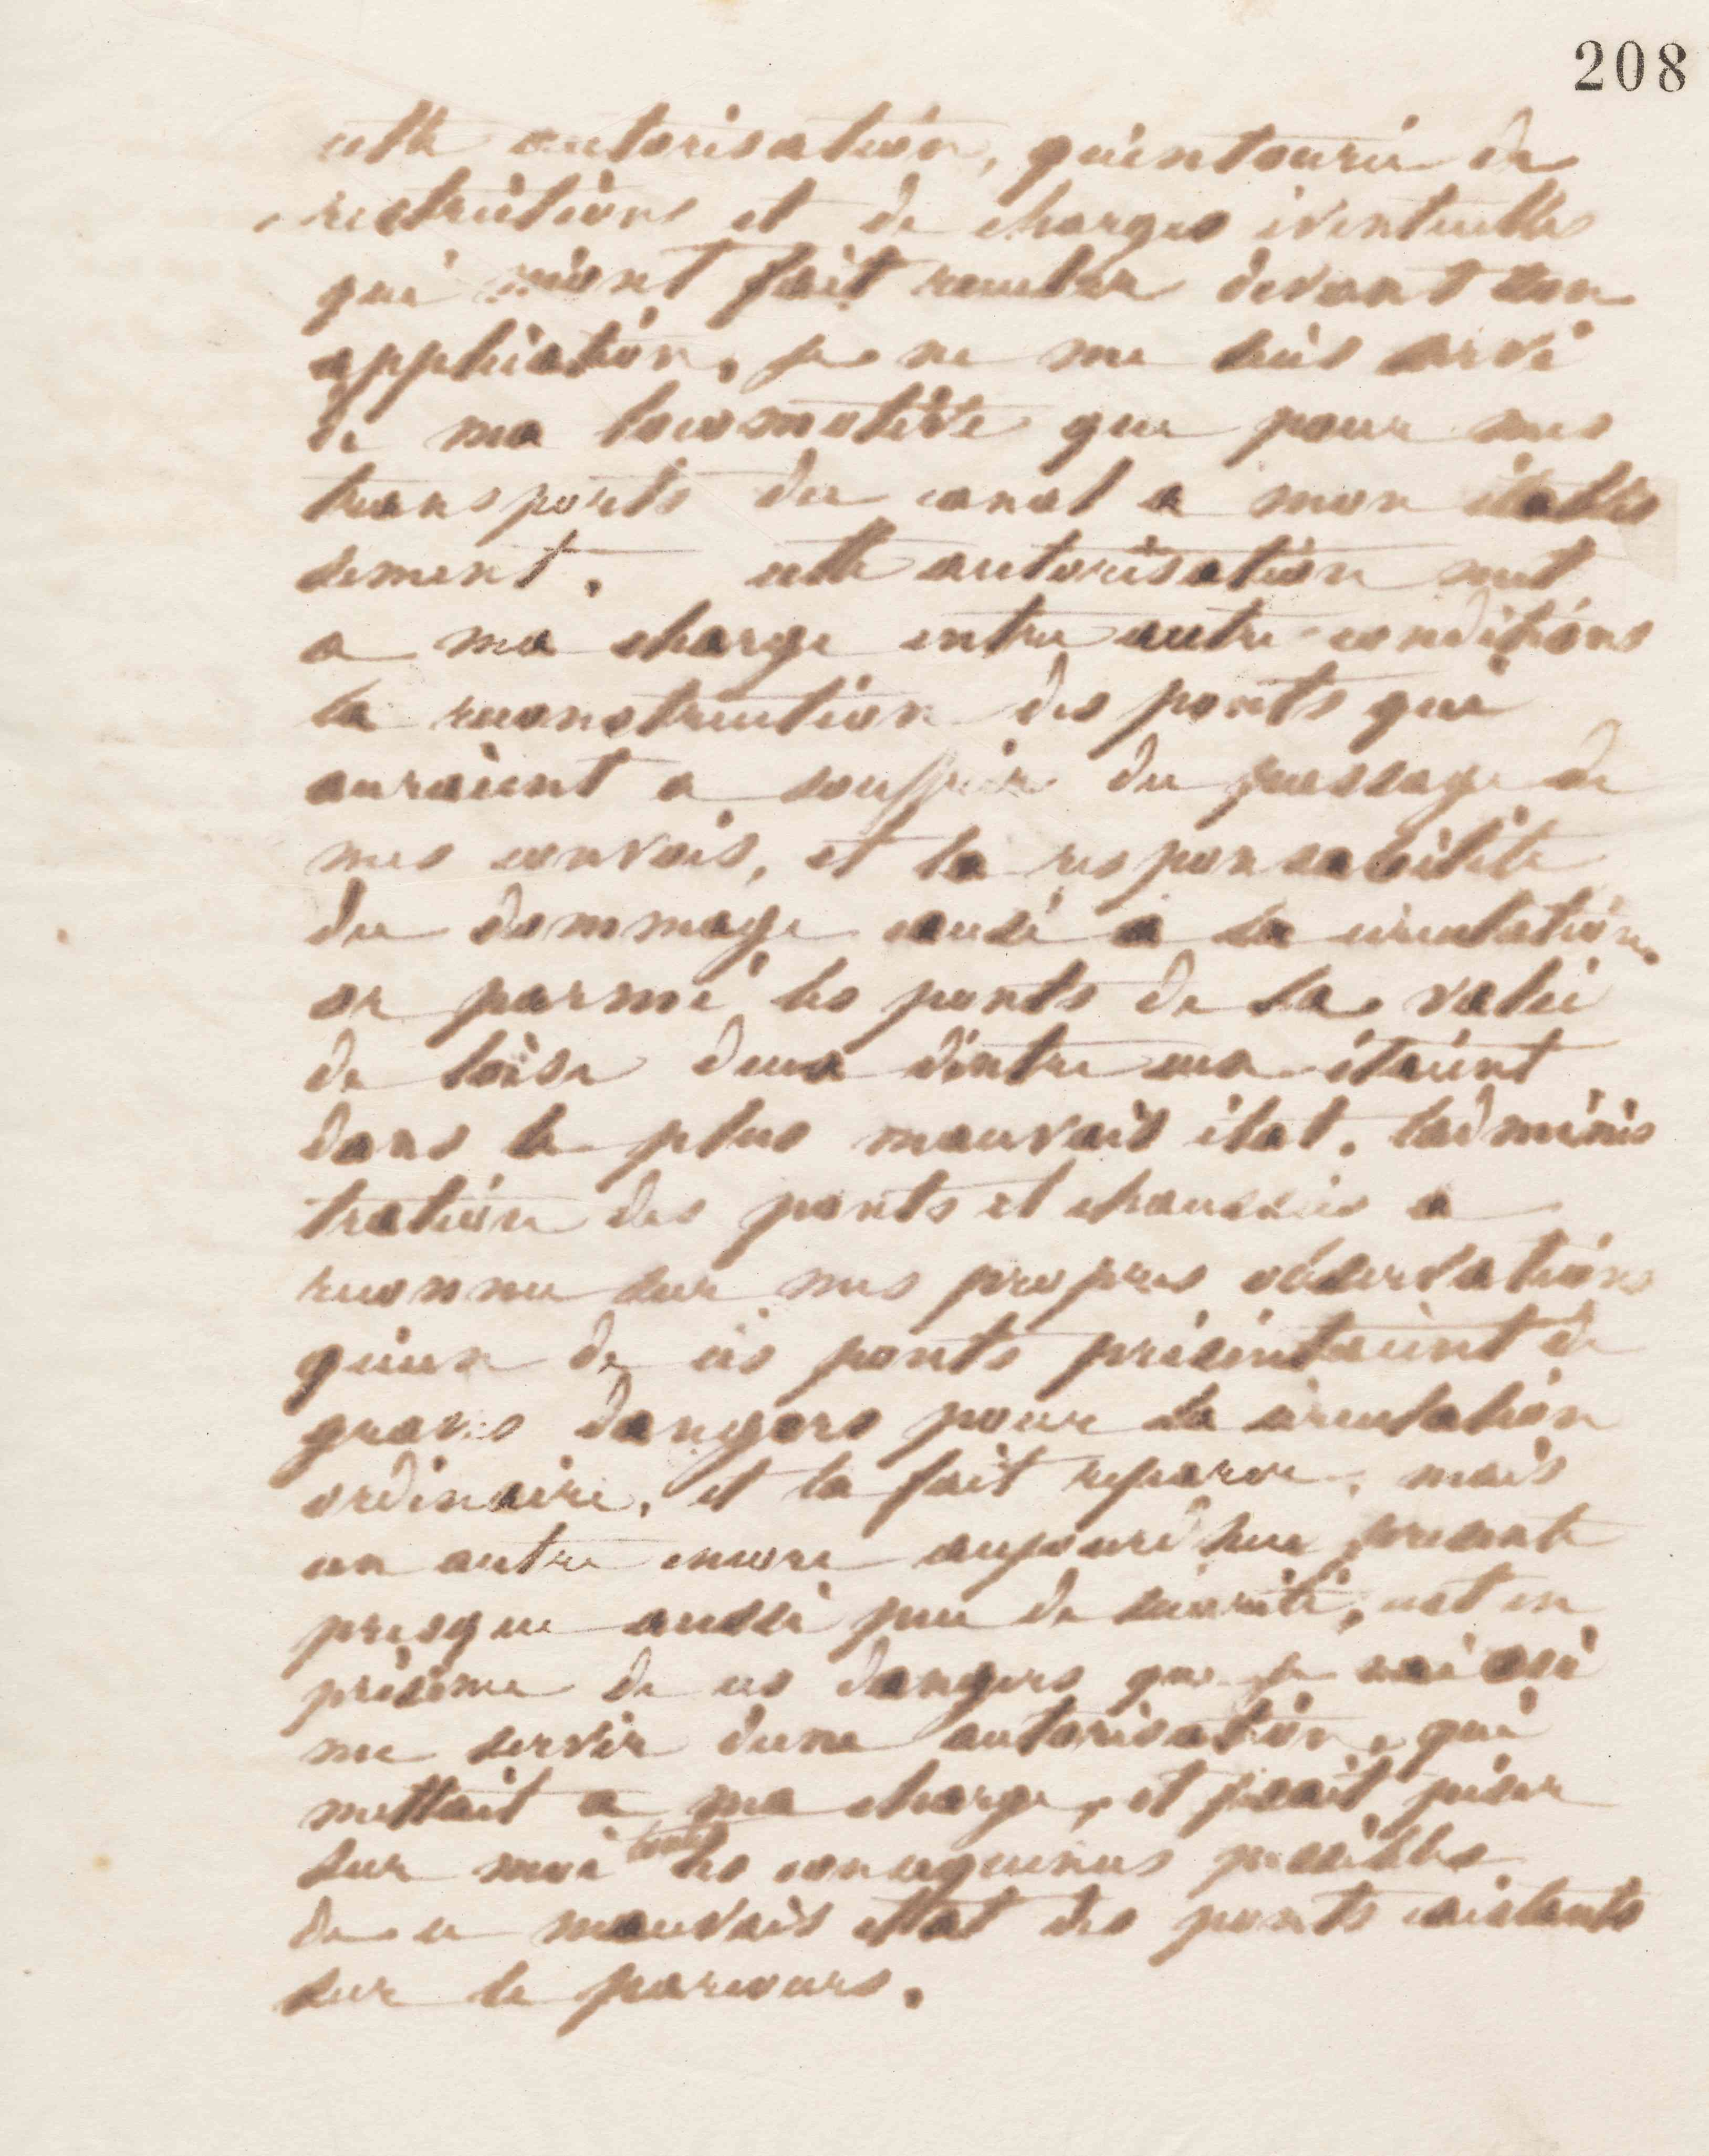 208
cette autorisation, qu'entouré de
restrictions et de charges éventuelles
qui m'ont fait reculer devant son
application, je ne me suis servi
de ma locomotive que pour mes
transports du canal a mon établis
sement. cette autorisation met
a ma charge entre autre conditions
la reconstruction des ponts qui
auraient a souffrir du passage de
mes convois, et la responsabilité
du dommage causé a la circulation.
or parmi les ponts de la valée
de loise deux dentre eux étaient
dans le plus mauvais état. ladminis
tration des ponts et chaussées a
reconnu sur mes propres observations
qu'un de ces ponts présentaient de
graves dangers pour la circulation
ordinaire, et la fait reparer, mais
un autre encore aujourdhui présente
presque aussi peu de sécurité, cest en
présence de ces dangers que je nai osé
me servir dune autorisation, qui
mettait a ma charge, et fesait peser
sur moi toutes les consequences possibles
de ce mauvais ettat des ponts existants
sur le parcours.